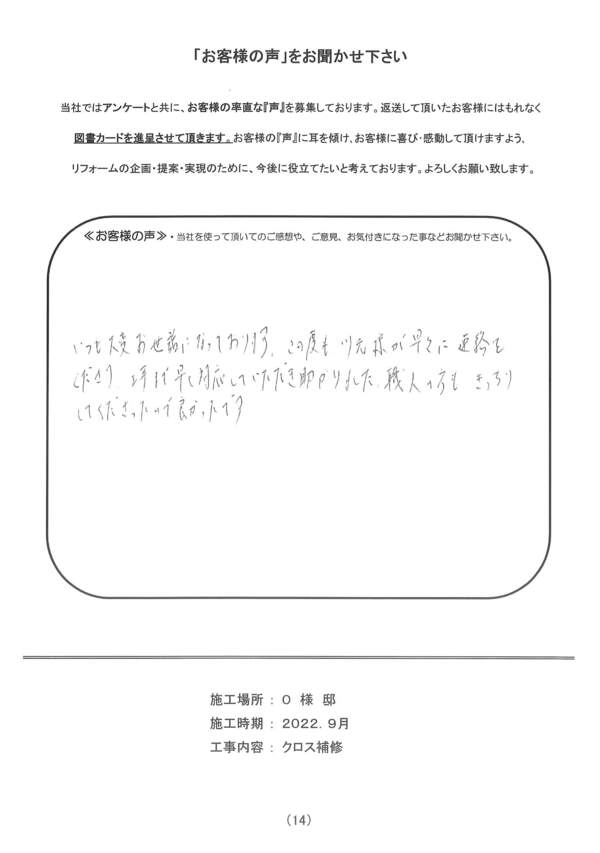 「お客様の声」をお聞かせ下さい
当社ではアンケートと共に、お客様の率直な『声』を募集しております。返送して頂いたお客様にはもれなく
図書カードを進呈させて頂きます。お客様の『声』に耳を傾け、お客様に喜び・感動して頂けますよう、
リフォームの企画・提案・実現のために、今後に役立てたいと考えております。よろしくお願い致します。
≪お客様の声≫・当社を使って頂いてのご感想や、ご意見、お気付きになった事などお聞かせ下さい。
いつも大変お世話になっております。この度も 川元様が早々に連絡を
くださり、早く対応していただき助かりました。職人の方も きっちり
してくださったので良かったです
施工場所 : O 様 邸
施工時期 : 2022.9月
工事内容 : クロス補修
(14)